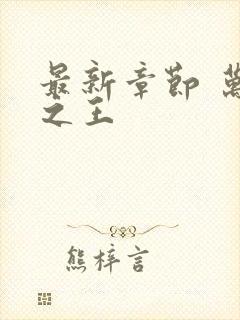 最新章節 萬
之王
熊梓言